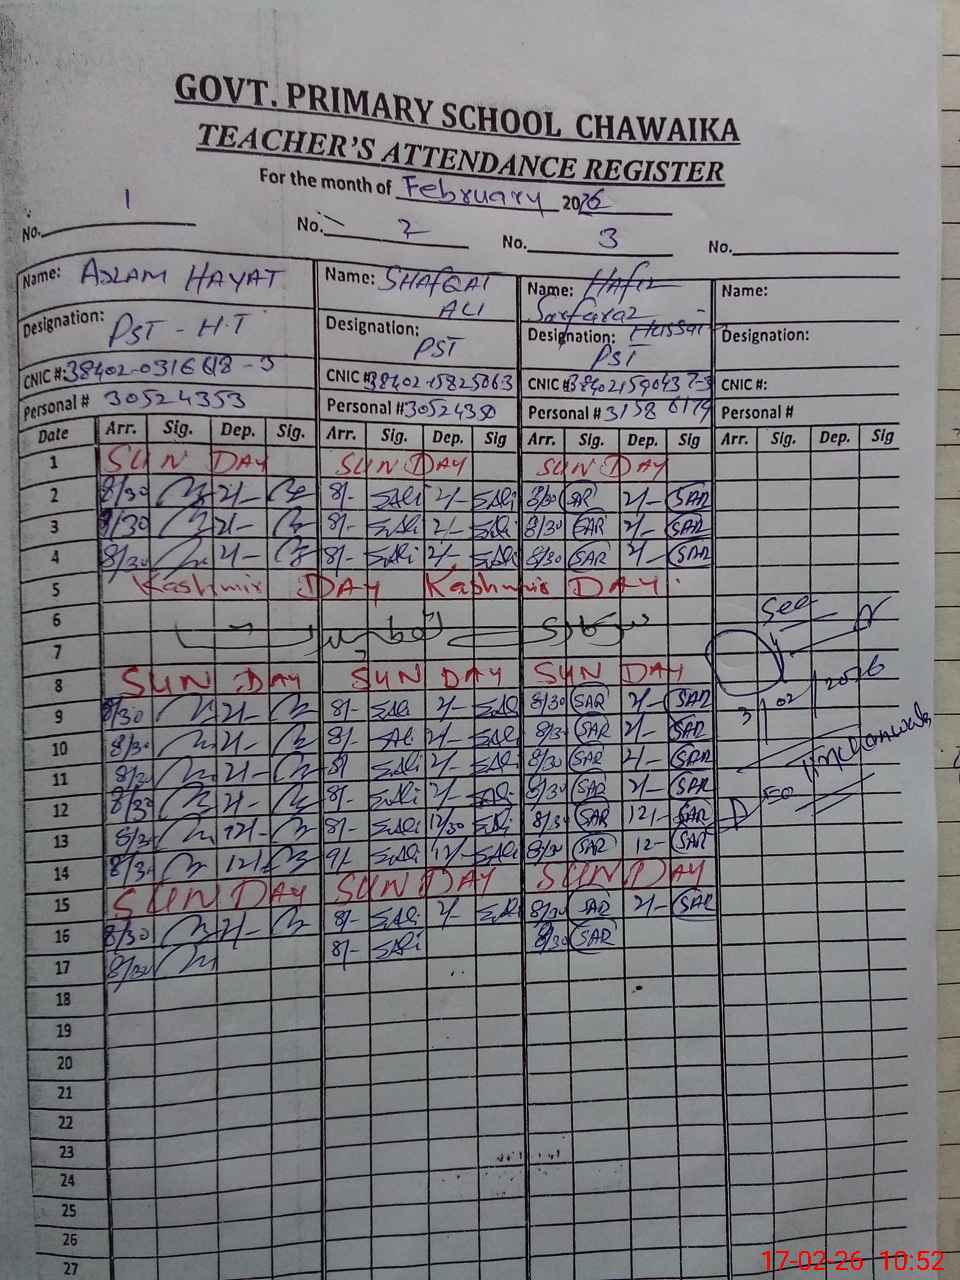 GOVT. PRIMARY SCHOOL CHAWAIKA
TEACHER'S ATTENDANCE REGISTER
For the month of February 2026
No. 1 No. 2 No. 3 No.
Name: ASLAM HAYAT Name: SHAFQAT ALI Name: Hafiz Sarfaraz Hussai Name:
Designation: PST - H.T Designation: PST Designation: PST Designation:
CNIC #: CNIC # CNIC # CNIC #:
Personal # 30524353 Personal # Personal # Personal #
Date Arr. Sig. Dep. Sig. Arr. Sig. Dep. Sig Arr. Sig. Dep. Sig Arr. Sig. Dep. Sig
1 SUN DAY SUN DAY SUN DAY
2 8/30 2/- 8/- SAli 2/- SAli 8/30 SAR 2/- SAR
3 8/30 2/- 8/- SAli 2/- SAli 8/30 SAR 2/- SAR
4 8/30 2/- 8/- SAli 2/- SAli 8/30 SAR 2/- SAR
5 Kashmir DAY Kashmir DAY
6
7
See
8 SUN DAY SUN DAY SUN DAY
9 8/30 2/- 8/- SAli 2/- SAli 8/30 SAR 2/- SAR
3/02/2026
10 8/30 2/- 8/- Ali 2/- SAli 8/30 SAR 2/- SAR
11 8/30 2/- 8/ SAli 2/- SAli 8/30 SAR 2/- SAR
12 8/30 2/- 8/- SAli 2/- SAli 8/30 SAR 2/- SAR
13 8/30 12/- 8/- SAli 12/30 SAli 8/30 SAR 12/- SAR
14 8/30 12/- 9/- SAli 12/- SAli 8/30 SAR 12- SAR
15 SUN DAY SUN DAY SUN DAY
16 8/30 2/- 8/- SAli 2/- SAli 8/30 SAR 2/- SAR
17 8/30 8/- SAli 8/30 SAR
18
19
20
21
22
23
24
25
26
27
17-02-26 10:52